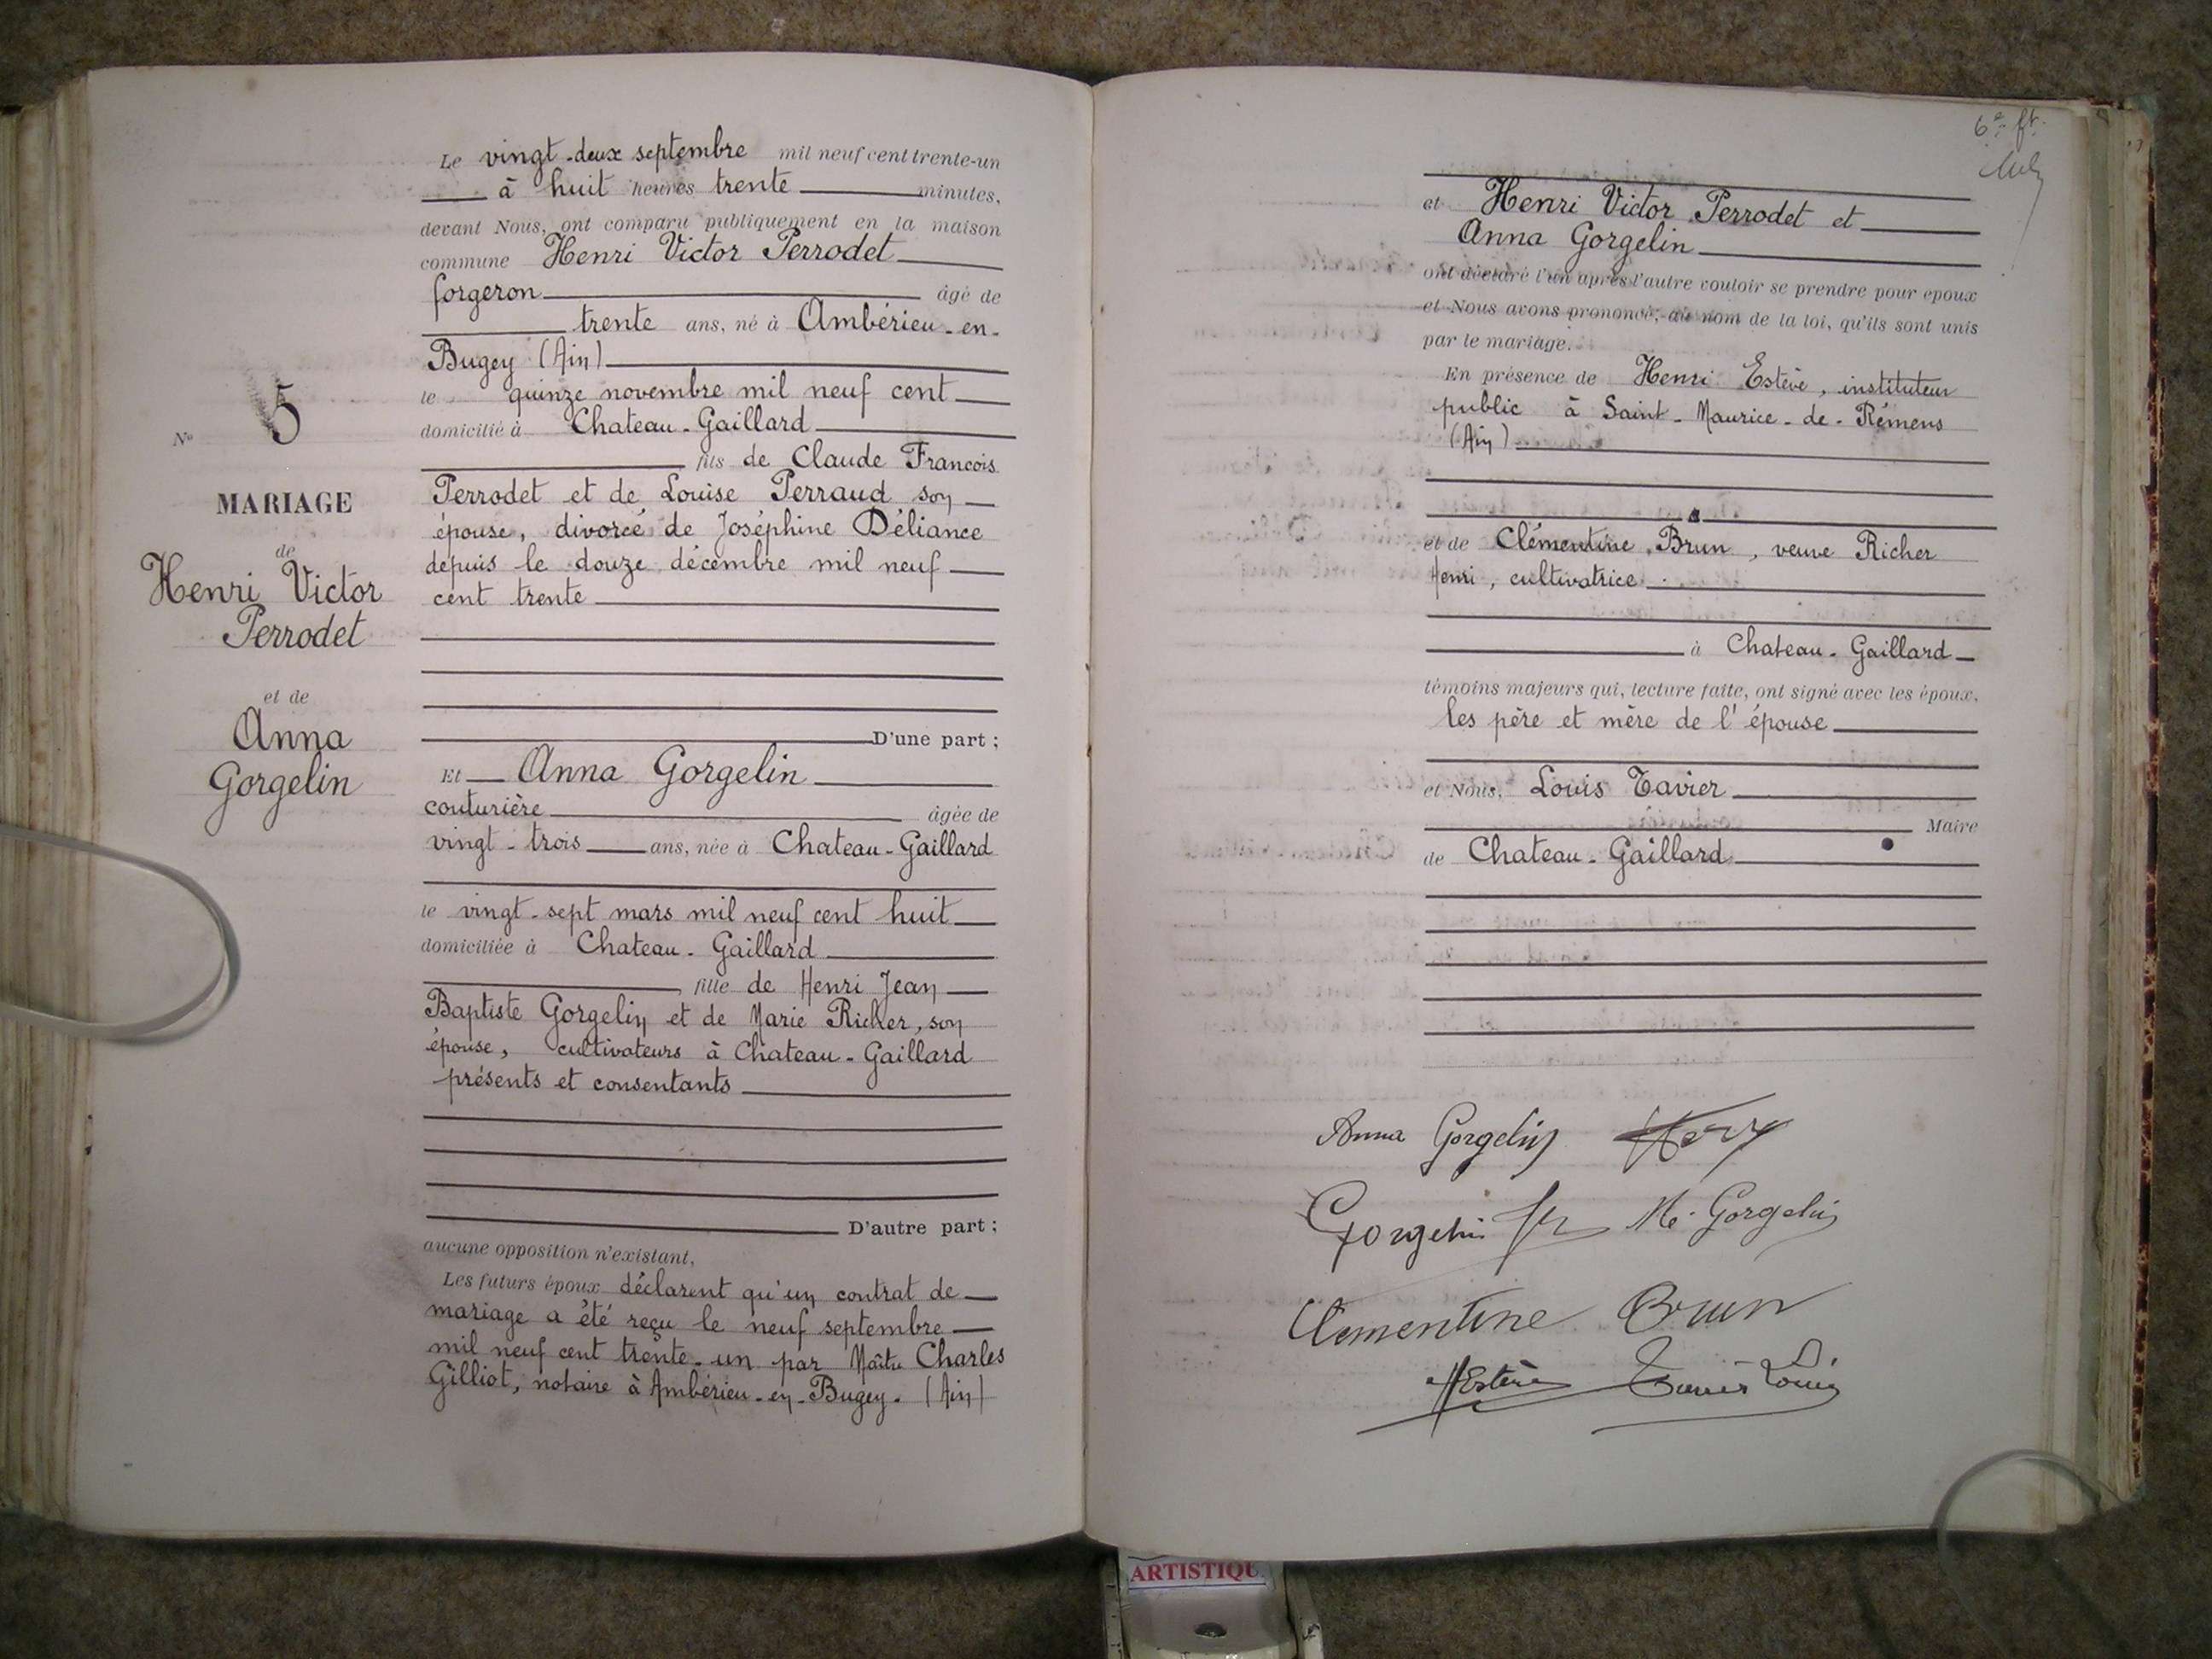 Le vingt-deux septembre mil neuf cent trente-un
à huit heures trente minutes,
devant Nous, ont comparu publiquement en la maison
commune Henri Victor Perrodet
forgeron âgé de
trente ans, né à Ambérieu-en-
Bugey (Ain)
le quinze novembre mil neuf cent
domicilié à Chateau-Gaillard
fils de Claude Francois
Perrodet et de Louise Perraud son
épouse, divorcé de Joséphine Déliance
depuis le douze décembre mil neuf
cent trente
D'une part ;
Et Anna Gorgelin
couturière âgée de
vingt-trois ans, née à Chateau-Gaillard
le vingt-sept mars mil neuf cent huit
domiciliée à Chateau-Gaillard
fille de Henri Jean
Baptiste Gorgelin et de Marie Richer, son
épouse, cultivateurs à Chateau-Gaillard
présents et consentants
D'autre part ;
aucune opposition n'existant,
Les futurs époux déclarent qu'un contrat de
mariage a été reçu le neuf septembre
mil neuf cent trente-un par Maître Charles
Gilliot, notaire à Ambérieu-en-Bugey. (Ain)
N° 5
MARIAGE
de
Henri Victor
Perrodet
et de
Anna
Gorgelin
6e ft.
et Henri Victor Perrodet et
Anna Gorgelin
ont déclaré l'un après l'autre vouloir se prendre pour epoux
et Nous avons prononcé, au nom de la loi, qu'ils sont unis
par le mariage.
En présence de Henri Estève, instituteur
public à Saint-Maurice-de-Rémens
(Ain)
et de Clémentine Brun, veuve Richer
Henri, cultivatrice
à Chateau-Gaillard
témoins majeurs qui, lecture faite, ont signé avec les époux,
les père et mère de l'épouse
et Nous, Louis Tavier
Maire
de Chateau-Gaillard
Anna Gorgelin
Gorgelin M. Gorgelin
Clementine Brun
HEstève Tavier Louis
ARTISTIQU